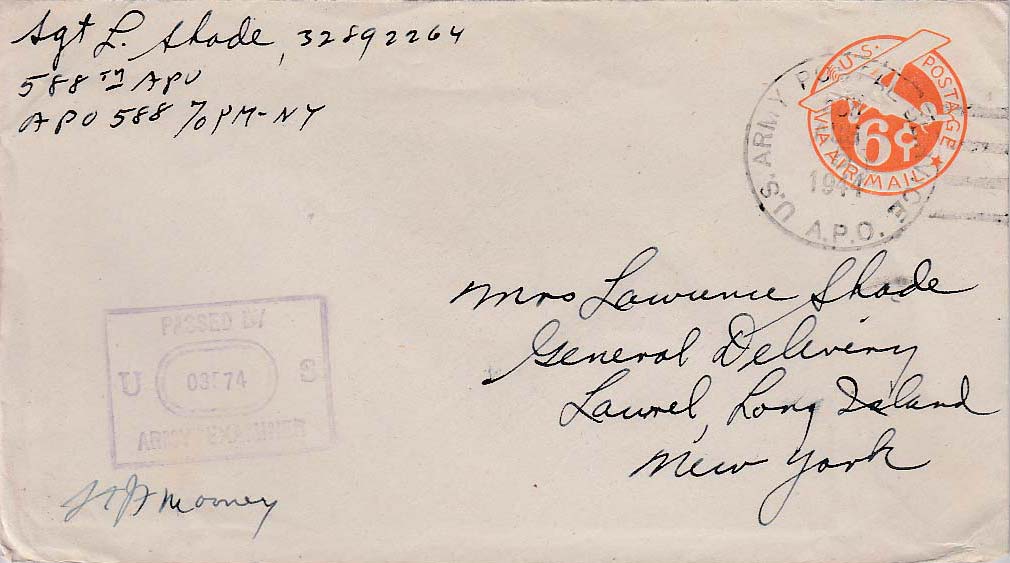 Sgt L. Shade, 32892264
588TH APU
APO 588 %PM-NY
U.S. POSTAGE
6¢
VIA AIR MAIL
U.S. ARMY POSTAL SERVICE
1944
A.P.O.
Mrs Lawrence Shade
General Delivery
Laurel, Long Island
New York
PASSED BY
U S
ARMY EXAMINER
Mooney